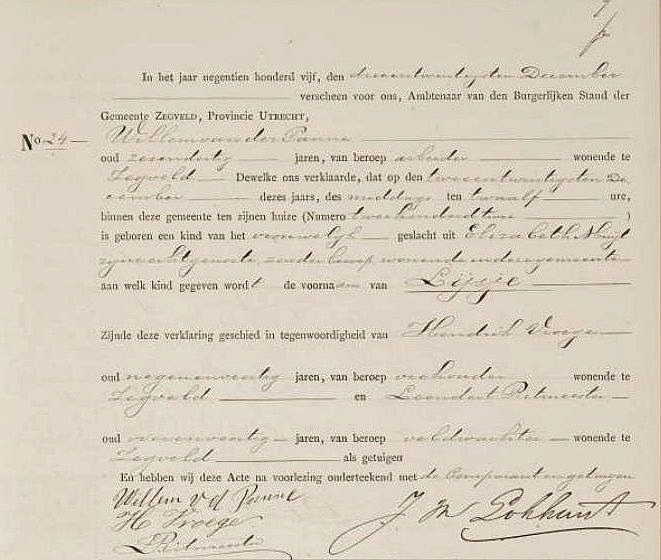 In het jaar negentien honderd vijf, den drieentwintigsten December
verscheen voor ons, Ambtenaar van den Burgerlijken Stand der
Gemeente ZEGVELD, Provincie UTRECHT,
No 24 Willem van der Panne
oud zesendertig jaren, van beroep arbeider wonende te
Zegveld Dewelke ons verklaarde, dat op den tweeentwintigsten De
cember dezes jaars, des middags ten twaalf ure,
binnen deze gemeente ten zijnen huize (Numero tweehonderdtwee )
is geboren een kind van het vrouwelijk geslacht uit Elizabeth
zijne echtgenoote, zonder beroep wonende in deze gemeente
aan welk kind gegeven wordt de voornaam van Lijsje
Zijnde deze verklaring geschied in tegenwoordigheid van Hendrik Vroege
oud jaren, van beroep veehouder wonende te
Zegveld en Leendert Ritmeester
oud jaren, van beroep veldwachter wonende te
Zegveld als getuigen
En hebben wij deze Acte na voorlezing onderteekend met de Comparant en getuigen
Willem v d Panne
H Vroege
L Ritmeester